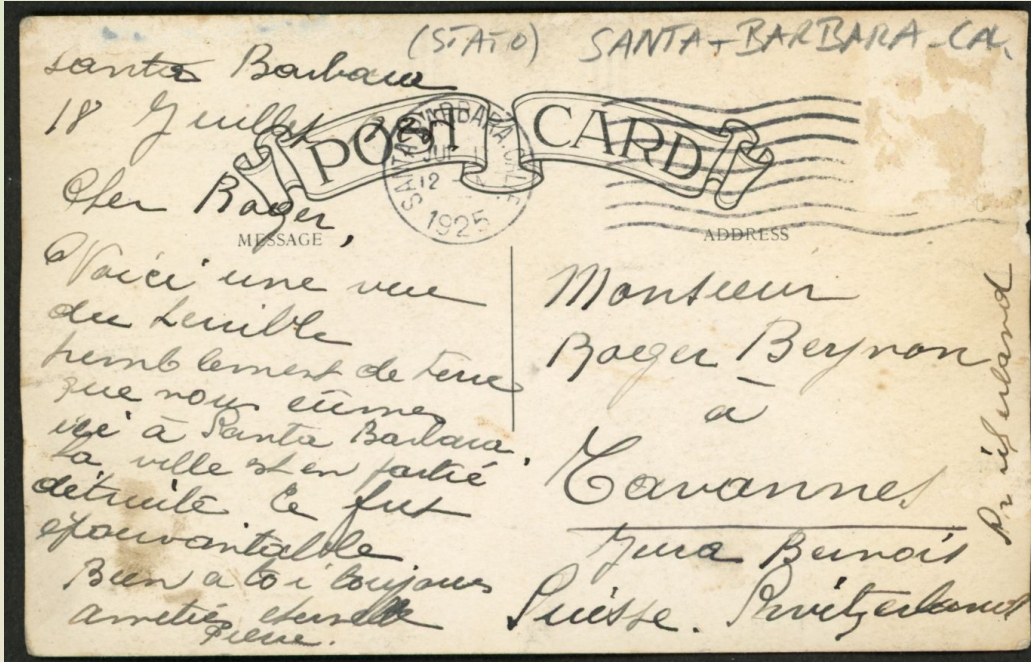 (STATO) SANTA-BARBARA-CAL.
Santa Barbara
18 Juillet
POST CARD
SANTA BARBARA, CALIF.
JUL
12
1925
Cher Roger,
MESSAGE
ADDRESS
Voici une vue
du terrible
tremblement de terre
que nous eûmes
ici à Santa Barbara.
La ville est en partie
détruite Ce fut
épouvantable
Bien a toi toujours
amitié eternelle
Pierre.
Monsieur
Roger Beynon
à
Tavannes
Jura Bernois
Suisse. Switzerland
Switzerland